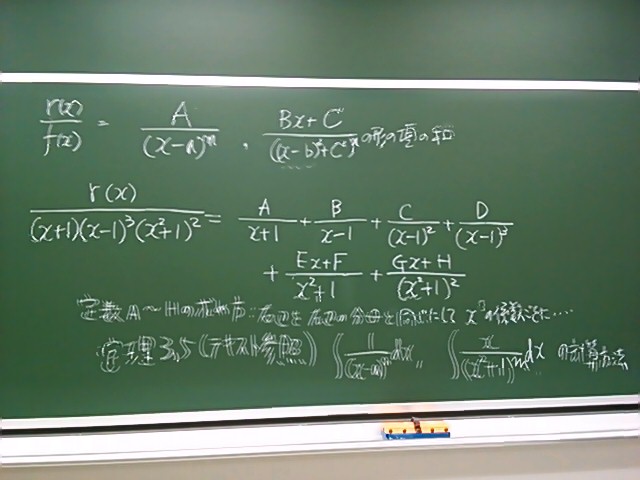 r(x)/f(x) = A/(x-a)^m , Bx+C/((x-b)²+C²)^n の形の項の和
r(x)/(x+1)(x-1)³(x²+1)² = A/x+1 + B/x-1 + C/(x-1)² + D/(x-1)³
+ Ex+F/x²+1 + Gx+H/(x²+1)²
定数A～Hの求め方:右辺を左辺の分母と同じにして x の係数ごとに....
定理3.5(テキスト参照) ∫1/(x-a)^m dx, ∫x/(x²+1)^m dx の計算方法